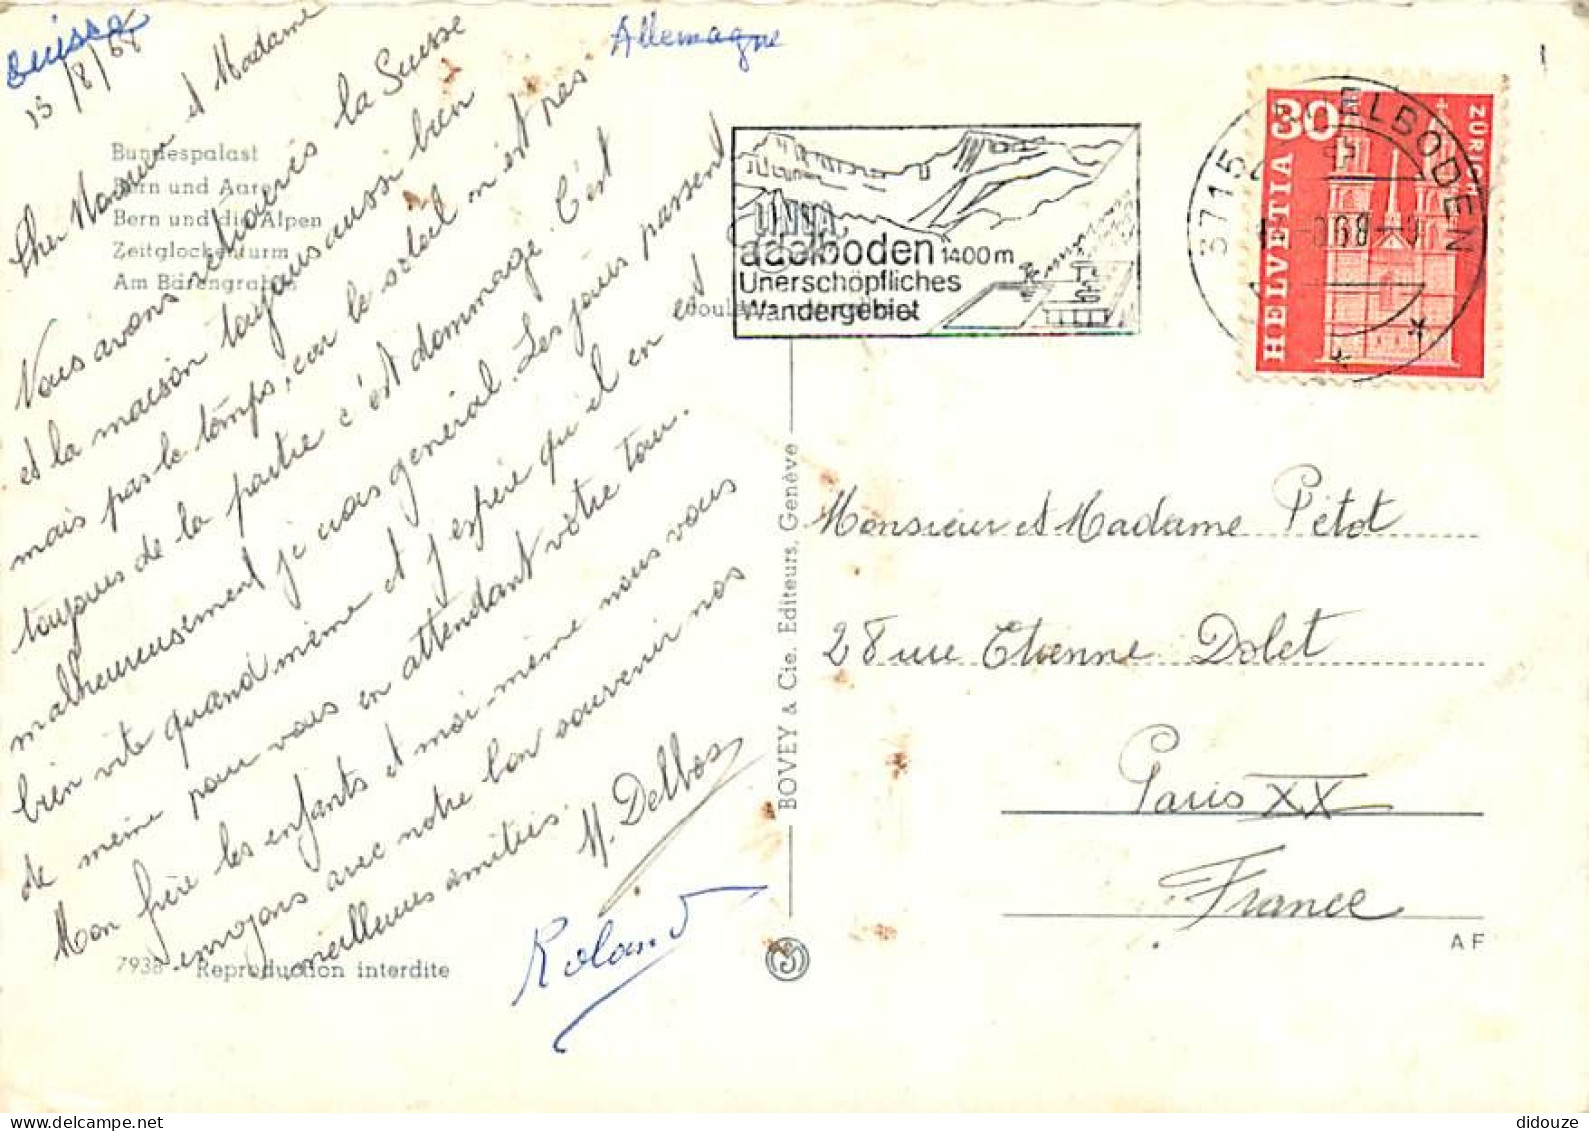 Suisse
15/8/68
Allemagne
Cher Monsieur et Madame
Vous avons retrouvés la Suisse
et la maison toujours aussi bien
mais pas le temps, car le soleil n'est pas
toujours de la partie c'est dommage. C'est
malheureusement je crois général. Les jours passent
bien vite quand même et j'espère qu'il en est
de même pour vous en attendant votre tour.
Mon frère les enfants et moi-même nous vous
envoyons avec notre bon souvenir nos
meilleures amitiés.
M. Delbos
Roland
Bundespalast
Bern und Aare
Bern und die Alpen
Zeitglockenturm
Am Bärengraben
7938 Reproduction interdite
BOVEY & Cie. Editeurs, Genève
adelboden 1400 m
Unerschöpfliches
Wandergebiet
3715 ADELBODEN
30
HELVETIA
ZÜRICH
Monsieur et Madame Pétot
28 rue Etienne Dolet
Paris XX
France
AF
didouze